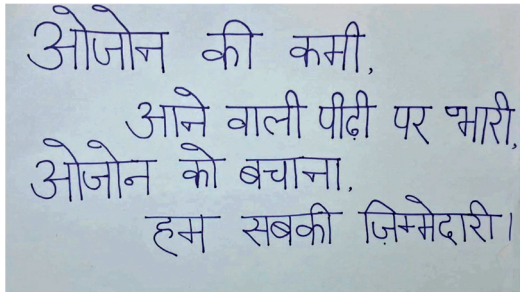 ओजोन की कमी,
आने वाली पीढ़ी पर भारी,
ओजोन को बचाना,
हम सबकी ज़िम्मेदारी।